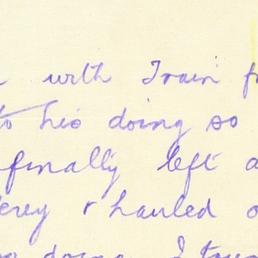 with Train
to his doing so
finally left a
& hauled o
doing. I